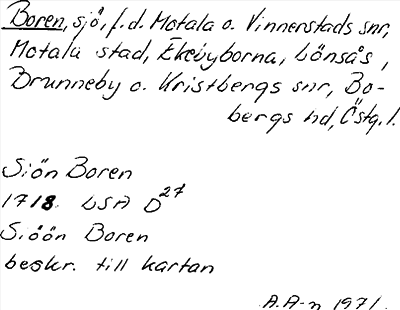 Boren, sjö, f.d. Motala o. Vinnerstads snr,
Motala stad, Ekebyborna, Lönsås,
Brunneby o. Kristbergs snr, Bo-
bergs hd, Östg. l.
Siön Boren
1718. LSA D27
Siöön Boren
beskr. till kartan
A.A-n 1971.